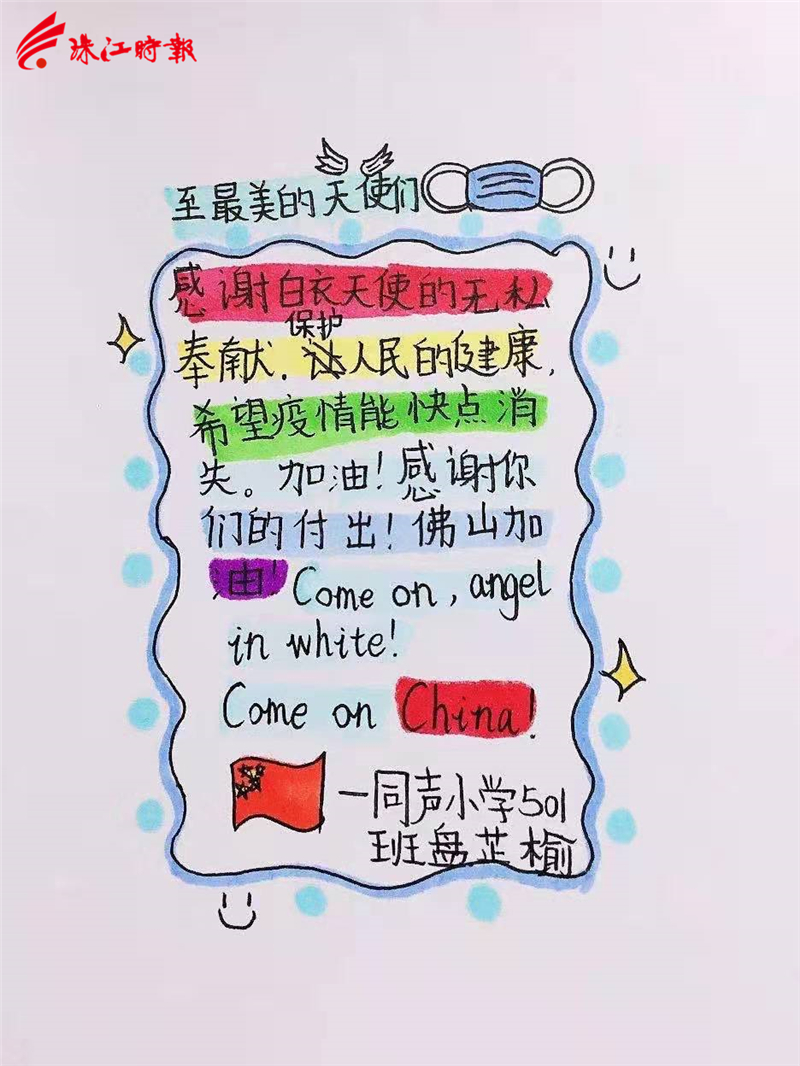 珠江时报
至最美的天使们
感谢白衣天使的无私
保护
奉献.让人民的健康,
希望疫情能快点消
失。加油!感谢你
们的付出!佛山加
油!Come on, angel
in white!
Come on China!
一同声小学501
班盘芷榆